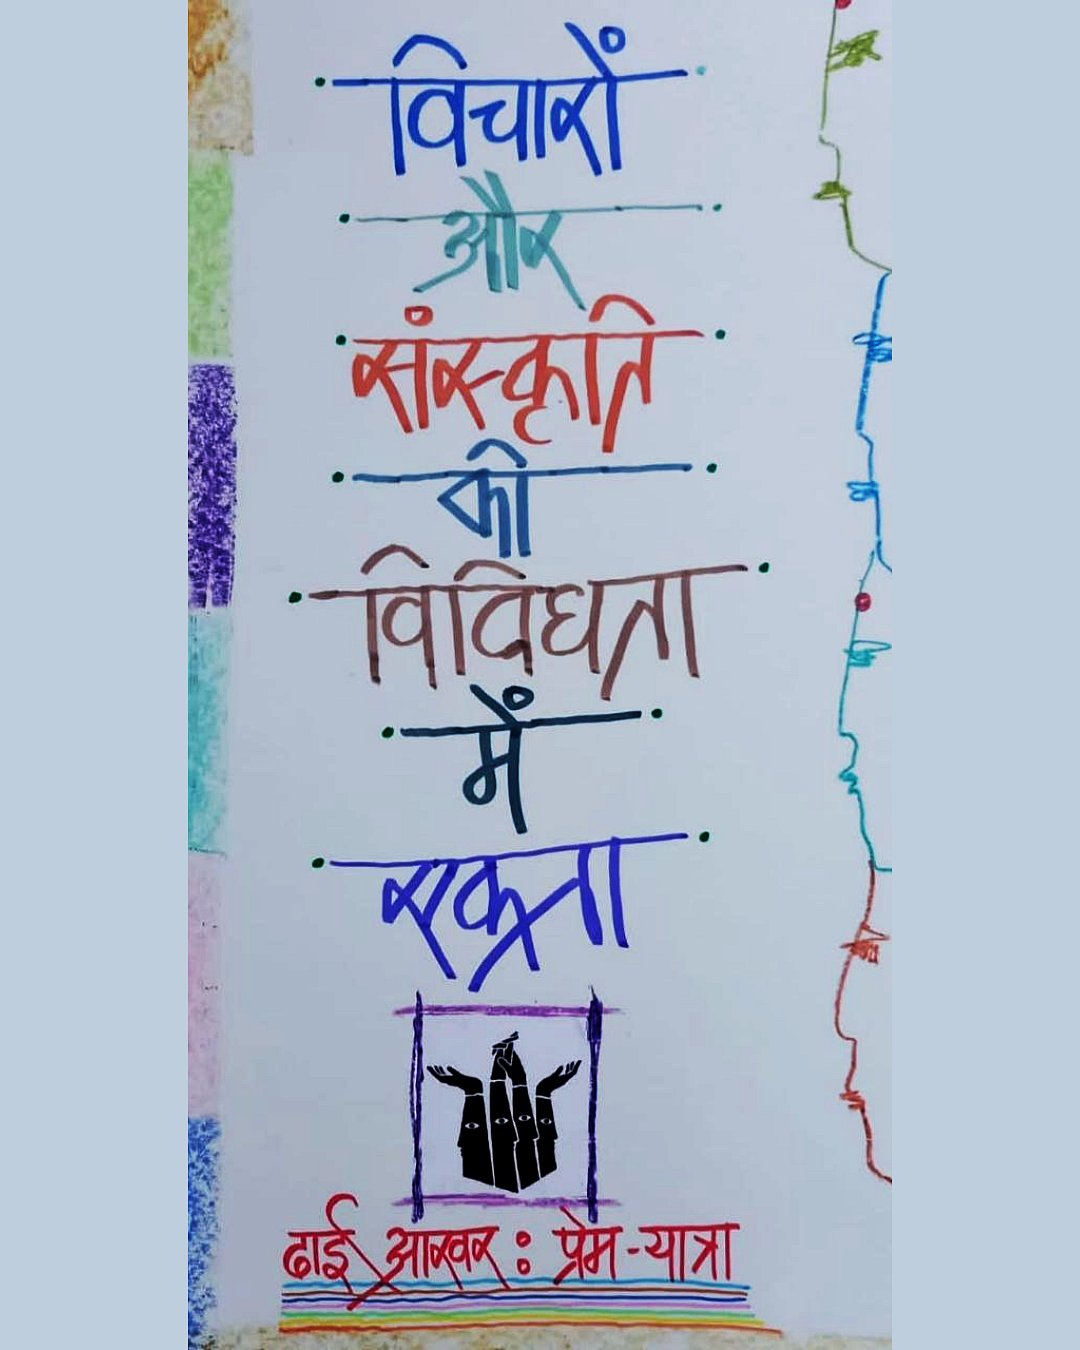 विचारों
और
संस्कृति
की
विविधता
में
एकता
ढाई आखर : प्रेम-यात्रा